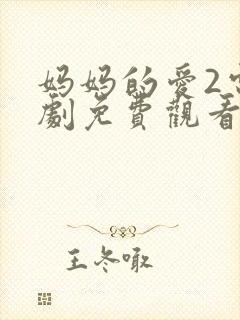 妈妈的爱2
劇免費觀看
王冬噉